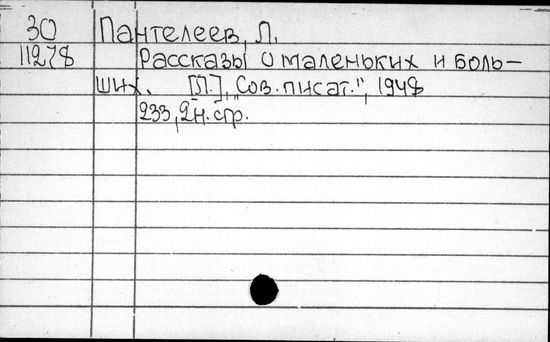 30 Пантелеев, Л.
11278 Рассказы о маленьких и боль-
ших. [Л.], "Сов. писат.", 1948
233, 2н. стр.